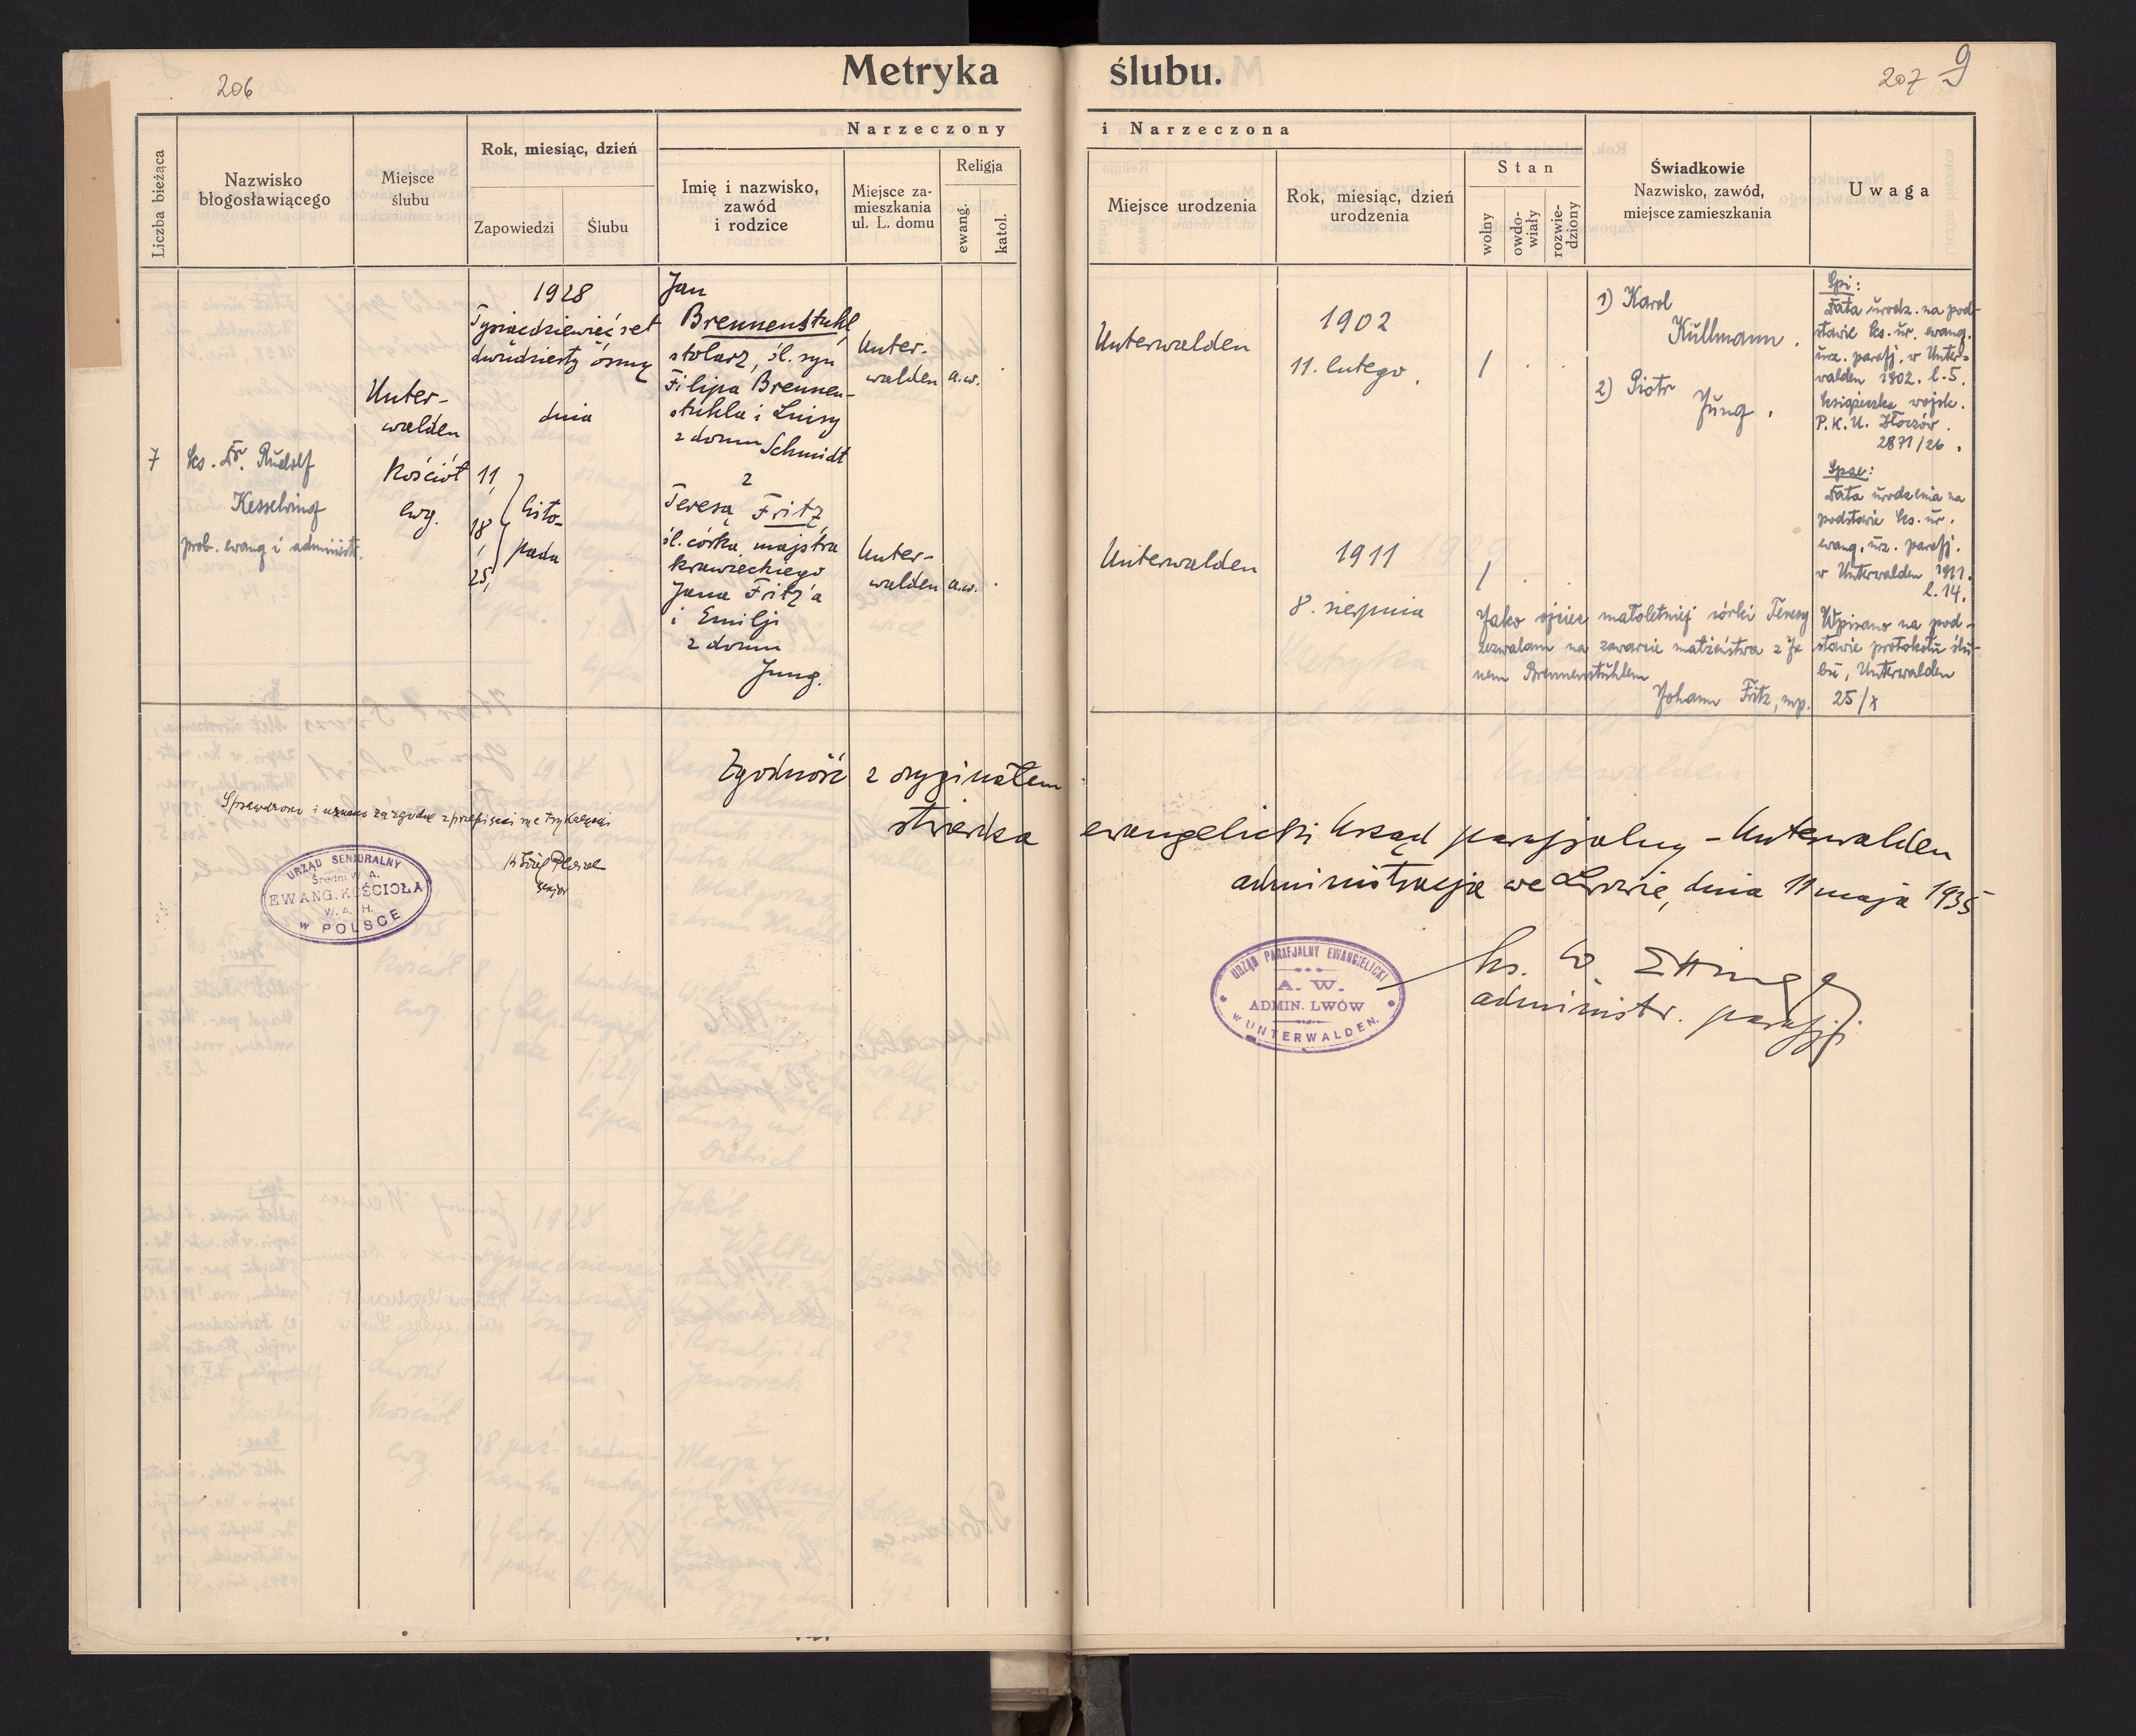 206
Metryka ślubu.
207 9
Liczba bieżąca
Nazwisko
błogosławiącego
Miejsce
ślubu
Rok, miesiąc, dzień
Zapowiedzi
Ślubu
Narzeczony
Imię i nazwisko,
zawód
i rodzice
Miejsce za-
mieszkania
ul. L. domu
Religja
ewang.
katol.
i Narzeczona
Miejsce urodzenia
Rok, miesiąc, dzień
urodzenia
Stan
wolny
owdo-
wiały
rozwie-
dziony
Świadkowie
Nazwisko, zawód,
miejsce zamieszkania
Uwaga
7
ks. Dr. Rudolf
Kesselring
prob. ewang i administr.
Unter-
walden
Kościół
ewg.
1928
Tysiącdziewięćset
dwudziesty ósmy
dnia
11,
18
,
25,
listo-
pada
Jan
Brennenstuhl
stolarz, śl. syn
Filipa Brennen-
stuhla i Luisy
z domu Schmidt
z
Teresą Fritz
śl. córka majstra
krawieckiego
Jana Fritz'a
i Emilji
z domu
Jung.
Unter-
walden
a.w.
Unter-
walden
a.w.
Unterwalden
1902
11. lutego.
/
Unterwalden
1911
8. sierpnia
/
1) Karol
Kullmann.
2) Piotr
Jung.
Jako ojciec małoletniej córki Teresy
zezwalam na zawarcie małżeństwa z Ja
nem Brennenstuhlem
Johann Fritz, mp.
Spi:
Data urodz. na pod-
stawie ks. ur. ewang.
urz. parafj. w Unter-
walden 1902. l. 5.
Książeczka wojsk.
P.K.U. Złoczów.
2871/26.
Spae:
Data urodzenia na
podstawie ks. ur.
ewang. urz. parafj.
w Unterwalden 1911.
l. 14.
Wpisano na pod-
stawie protokołu ślu-
bu, Unterwalden
25/x
Zgodność z oryginałem
stwierdza ewangelicki Urząd parafjalny - Unterwalden
administracja we Lwowie, dnia 11 maja 1935
Sprawdzono i uznano za zgodne z przepisami metrykalnymi
senjor
URZĄD SENIORALNY
Średni W. A.
EWANG. KOŚCIOŁA
W. A. H.
w POLSCE
URZĄD PARAFJALNY EWANGIELICKI
A. W.
ADMIN. LWÓW
w UNTERWALDEN.
ks. W. Ettinger
administr. parafji